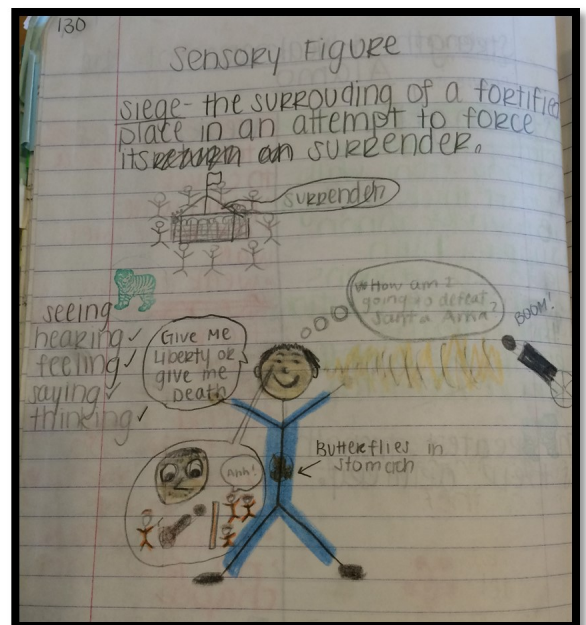 130
Sensory Figure
siege- the surrouding of a fortified
place in an attempt to force
its an surrender.
surrender?
seeing
hearing ✓
feeling ✓
saying ✓
thinking ✓
Give Me
liberty or
give me
Death
How am I
going to defeat
Santa Anna?
BOOM!
Butterflies in
stomach
Ahh!